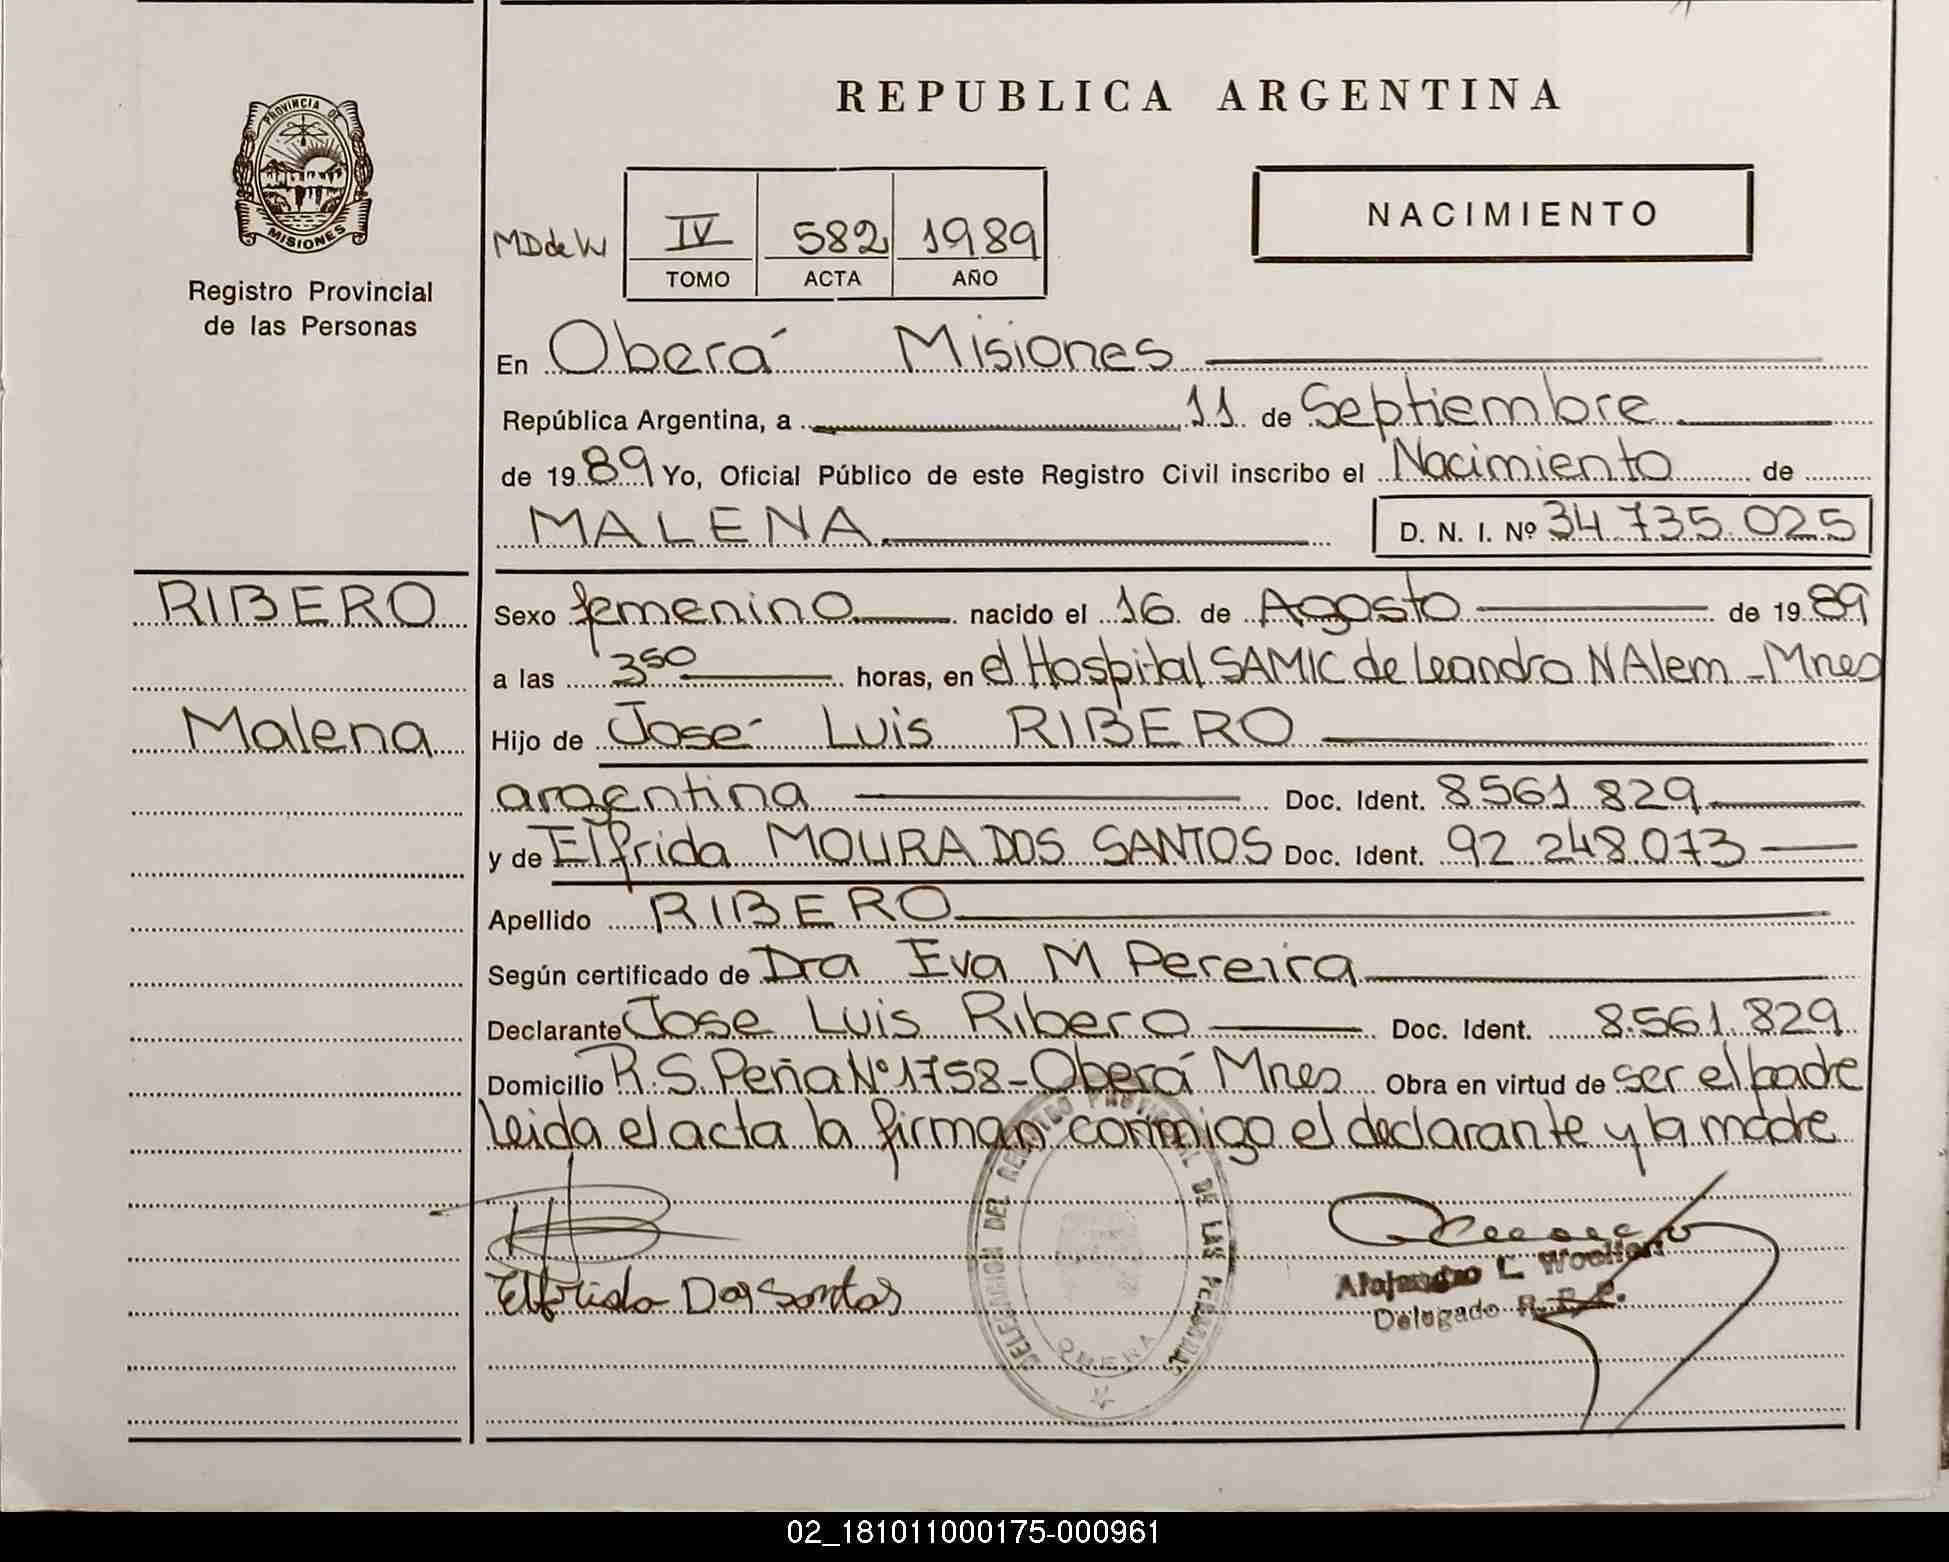 REPUBLICA ARGENTINA
PROVINCIA DE
MISIONES
Registro Provincial
de las Personas
NACIMIENTO
IV 582 1989
TOMO ACTA AÑO
En Oberá Misiones
República Argentina, a 11 de Septiembre
de 1989 Yo, Oficial Público de este Registro Civil inscribo el Nacimiento de
MALENA D. N. I. Nº 34.735.025
RIBERO
Malena
Sexo femenino nacido el 16 de Agosto de 1989
a las 350 horas, en el Hospital SAMIC de Leandro N Alem - Mnes
Hijo de José Luis RIBERO
argentina Doc. Ident. 8561829
y de Elfrida MOURA DOS SANTOS Doc. Ident. 92.248.073
Apellido RIBERO
Según certificado de Dra Eva M Pereira
Declarante Jose Luis Ribero Doc. Ident. 8.561.829
Domicilio R.S. Peña Nº 1758 - Oberá Mnes Obra en virtud de ser el padre
Leida el acta la firman conmigo el declarante y la madre
Elfrida Dos Santos
DELEGACION DEL REGISTRO PROVINCIAL DE LAS PERSONAS
OBERA
Delegado
02_181011000175-000961